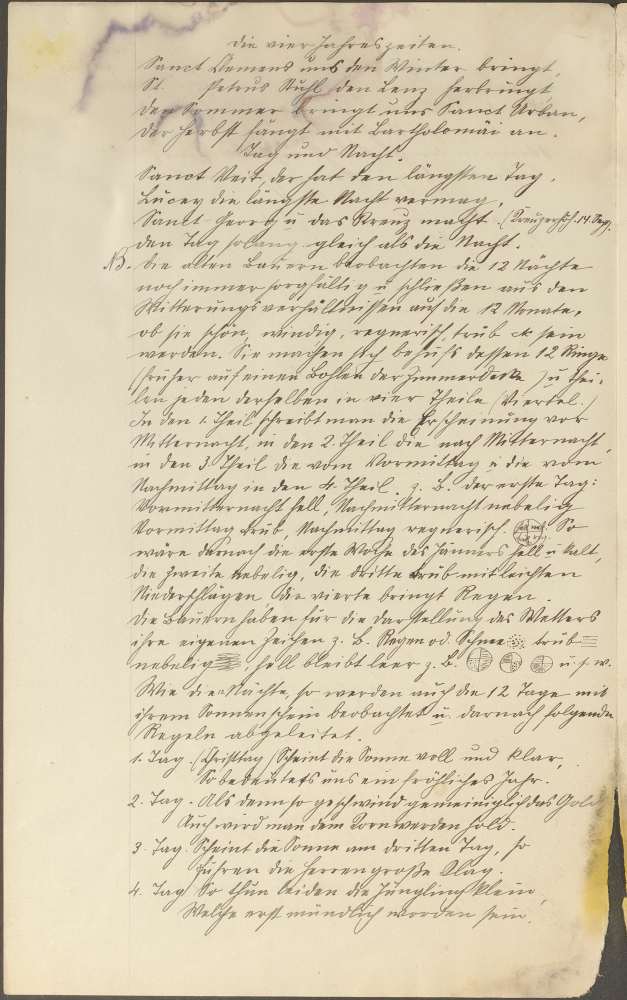 Die vier Jahreszeiten.
Sanct Clemens uns den Winter bringt,
St. Petrus Stuhl den Lenz herbringt
Den Sommer bringt uns Sanct Urban,
Der Herbst fängt mit Bartholomäi an.
Tag und Nacht.
Sanct Veit, der hat den längsten Tag,
Lucey die längste Nacht vermag,
Sanct Georg u das Kreuz macht (Kreuzerhöh. 14 Sep.
den Tag solang gleich als die Nacht.
NB. Die alten Bauern beobachten die 12 Nächte
noch immer sorgfältig u schließen aus den
Witterungsverhältnissen auf die 12 Monate,
ob sie schön, windig, regnerisch, trüb etc sein
werden. Sie machen sich behufs dessen 12 Ringe
(früher auf einen Bohlen der Zimmerdecke) u thei-
len jeden derselben in vier Theile (Viertel.)
In den 1. Theil schreibt man die Erscheinung vor
Mitternacht, in den 2. Theil die nach Mitternacht
in den 3. Theil die vom Vormittag u die vom
Nachmittag in den 4. Theil. z. B. der erste Tag:
Vormitternacht hell, Nachmitternacht nebelig
Vormittag trüb, Nachmittag regnerisch. So
wäre darnach die erste Woche des Jänners hell u kalt,
die zweite nebelig, die dritte trüb mit leichten
Niederschlägen die vierte bringt Regen.
Die Bauern haben für die Darstellung des Wetters
ihre eigenen Zeichen z. B. Regen od. Schnee trüb
nebelig, hell bleibt leer z. B. u. s. w.
Wie die Nächte, so werden auch die 12 Tage mit
ihrem Sonnenschein beobachtet u. darnach folgende
Regeln abgeleitet.
1. Tag. (Christtag) Scheint die Sonne voll und klar,
So bedeutets uns ein fröhliches Jahr.
2. Tag. Als dann so geschwind gemeiniglich das Gold
Auch wird man dem Korn werden hold.
3. Tag. Scheint die Sonne am dritten Tag, so
führen die Herren große Klag.
4. Tag So thun leiden die Jüngling klein,
Welche erst mündlich worden sein.